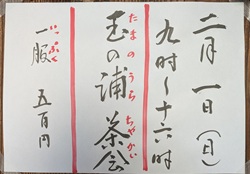 二月一日(日)
九时〜十六时
玉の浦茶会
たまのうらちゃかい
一服 五百円
いっぷく